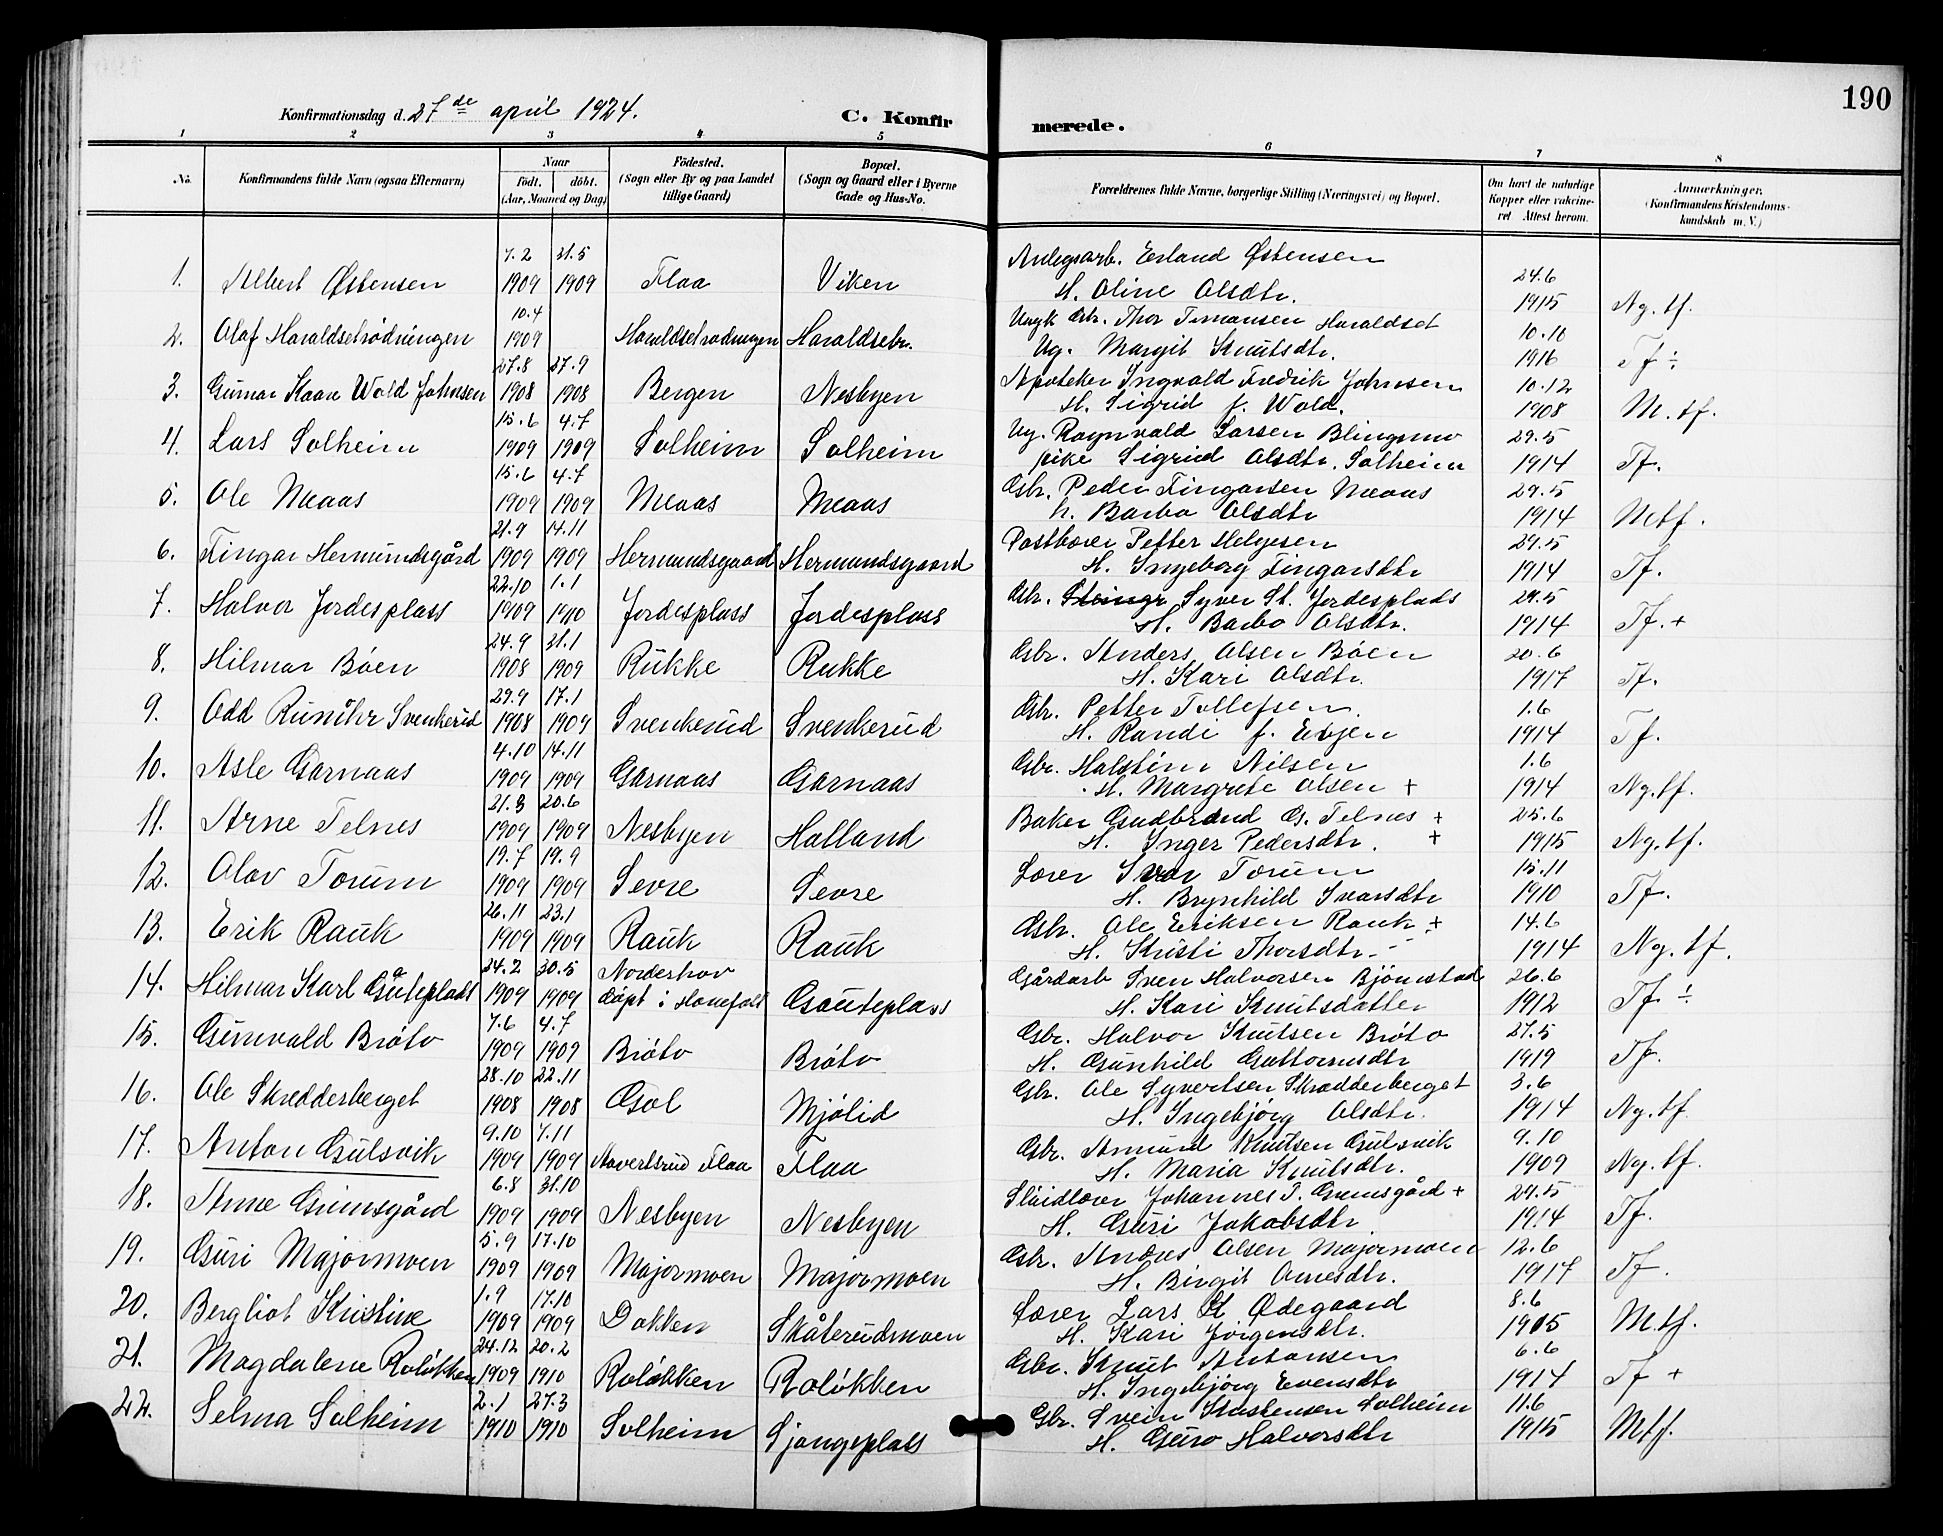 190
Konfirmationsdag d. 27de april 1924.
C. Konfirmerede.
1 2 3 4 5 6 7 8
No.
Konfirmandens fulde Navn (ogsaa Efternavn)
Naar
født. døbt.
(Aar, Maaned og Dag)
Födested.
(Sogn eller By og paa Landet
tillige Gaard)
Bopæl.
(Sogn og Gaard eller i Byerne
Gade og Hus-No.
Forældrenes fulde Navne, borgerlige Stilling (Næringsvei) og Bopæl.
Om havt de naturlige
Kopper eller vakcine-
ret Attest herom.
Anmærkninger.
(Konfirmandens Kristendoms-
kundskab m. V.)
7.2 21.5 Anlegsarb. Erland Østensen 24.6
1. Albert Østensen 1909 1909 Flaa Viken H. Oline Olsdtr. 1915 Ng. tf.
10.4 Thor Haraldset 10.10
2. Olaf Haraldsetrødningen 1909 Haraldsetrødningen Haraldsetr. Ug. Margit Knutsdtr. 1916 Tf ÷
27.8 27.9 Apoteker Ingvald Fredrik Johnsen 10.12
3. Gunnar Kaare Wold Johnsen 1908 1908 Bergen Nesbyen H. Sigrid f. Wold. 1908 M. tf.
15.6 4.7 Ug. Ragnvald Larsen Blingsmo 29.5
4. Lars Solheim 1909 1909 Solheim Solheim pike Sigrid Olsdtr. Solheim 1914 Tf.
15.6 4.7 Gbr. Peder Fingarsen Meaas 29.5
5. Ole Meaas 1909 1909 Meaas Meaas h. Barbo Olsdtr 1914 Mtf.
21.9 14.11 Postbærer Petter Helgesen 29.5
6. Fingar Hermundsgård 1909 1909 Hermundsgaard Hermundsgaard H. Ingeborg Fingarsdtr 1914 Tf.
22.10 1.1 Gbr. Syver St. Jordesplads 29.5
7. Halvor Jordesplass 1909 1910 Jordesplass Jordesplass H. Barbo Olsdtr. 1914 Tf. +
24.9 31.1 Gbr. Anders Olsen Bøen 20.6
8. Hilmar Bøen 1908 1909 Rukke Rukke H. Kari Olsdtr. 1917 Tf.
29.9 17.1 Gbr. Petter Tollefsen. 1.6
9. Odd Svenkerud 1908 1909 Svenkerud Svenkerud H. Randi f. Evjen 1914 Tf.
4.10 14.11 Gbr. Halstein Nilsen 1.6
10. Asle Garnaas 1909 1909 Garnaas Garnaas H. Margrete Olsen + 1914 Ng. tf.
21.3 20.6 Baker Gudbrand G. Telnes + 25.6
11. Arne Telnes 1909 1909 Nesbyen Halland H. Inger Pedersdtr. + 1915 Ng. tf.
19.7 19.9 Lærer Ivar Torum 15.11
12. Olav Torum 1909 1909 Sevre Sevre H. Brynhild Ivarsdtr 1910 Tf.
26.11 23.1 Gbr. Ole Eriksen Rauk 14.6
13. Erik Rauk 1909 1909 Rauk Rauk H. Kristi Thorsdtr. 1914 Ng. tf.
24.2 30.5 Norderhov Gårdarb Sven Halvorsen Bjørnstad 26.6
14. Hilmar Karl Gauteplads 1909 1909 døpt i Hønefoss Gauteplass H. Kari Knutsdatter 1912 Tf ÷
7.6 4.7 Gbr. Halvor Knutsen Brøto 27.5
15. Gunvald Brøto 1909 1909 Brøto Brøto H. Gunhild Guttormsdtr 1919 Tf.
28.10 22.11 Gbr. Ole Syvertsen Skrædderberget 3.6
16. Ole Skrædderberget 1908 1908 Gol Mjølid H. Ingebjørg Olsdtr. 1914 Ng. tf.
9.10 7.11 Gbr. Amund Knutsen Gulsvik 9.10
17. Anton Gulsvik 1909 1909 Aavertsrud Flaa Flaa H. Maria Knutsdtr. 1909 Ng. tf.
6.8 31.10 Sløidlærer Johannes T. Grimsgård + 29.5
18. Anne Grimsgård 1909 1909 Nesbyen Nesbyen H. Guri Jakobsdtr 1914 Tf.
5.9 17.10 Gbr. Anders Olsen Majormoen 12.6
19. Guri Majormoen 1909 1909 Majormoen Majormoen H. Birgit Arnesdtr. 1917 Tf.
1.9 17.10 Lærer Lars H Ødegaard 8.6
20. Bergliot Kristine 1909 1909 Dokken Skåterudmoen H. Kari Jørgensdtr. 1915 M. tf.
24.12 20.2 Gbr. Knut Antonsen 6.6
21. Magdalene Roløkken 1909 1910 Roløkken Roløkken H. Ingebjørg Evensdtr 1914 Tf +
2.1 27.3 Gbr. Svein Solheim 11.6
22. Selma Solheim 1910 1910 Solheim Sjongeplass H. Guro Halvorsdtr 1915 Mtf.